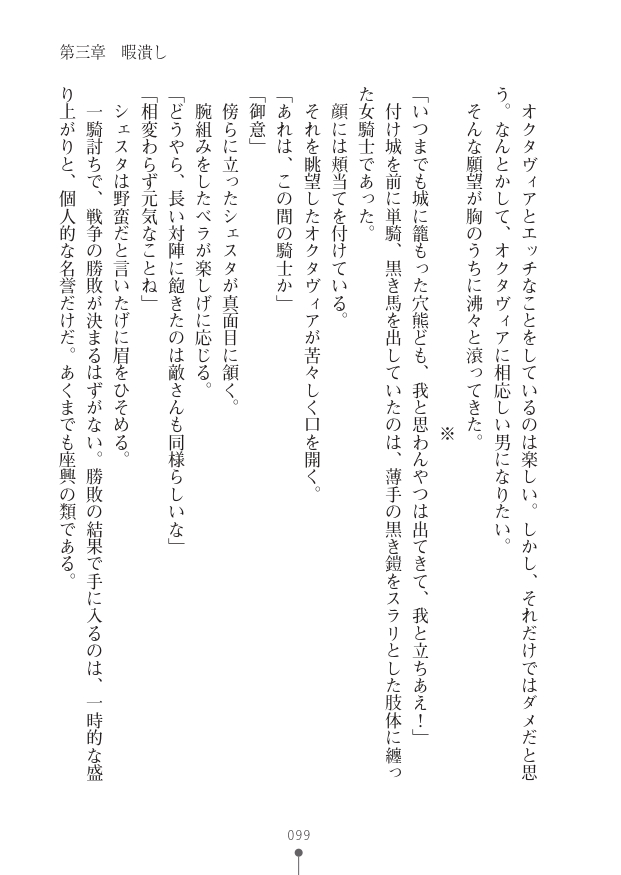 第三章　暇潰し
　オクタヴィアとエッチなことをしているのは楽しい。しかし、それだけではダメだと思
う。なんとかして、オクタヴィアに相応しい男になりたい。
　そんな願望が胸のうちに沸々と滾ってきた。
※
「いつまでも城に籠もった穴熊ども、我と思わんやつは出てきて、我と立ちあえ！」
　付け城を前に単騎、黒き馬を出していたのは、薄手の黒き鎧をスラリとした肢体に纏っ
た女騎士であった。
　顔には頬当てを付けている。
　それを眺望したオクタヴィアが苦々しく口を開く。
「あれは、この間の騎士か」
「御意」
　傍らに立ったシェスタが真面目に頷く。
　腕組みをしたベラが楽しげに応じる。
「どうやら、長い対陣に飽きたのは敵さんも同様らしいな」
「相変わらず元気なことね」
　シェスタは野蛮だと言いたげに眉をひそめる。
　一騎討ちで、戦争の勝敗が決まるはずがない。勝敗の結果で手に入るのは、一時的な盛
り上がりと、個人的な名誉だけだ。あくまでも座興の類である。
099